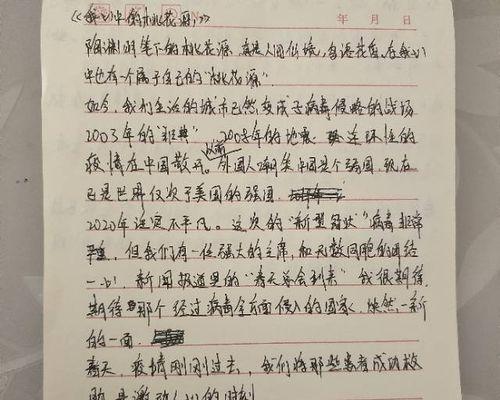 《我心中的桃花源》
年 月 日
陶渊明笔下的桃花源,真是人间仙境,鸟语花香,在我心
中也有一个属于自己的“桃花源”
如今,我们生活的城市已然变成了病毒侵略的战场
2003年的“非典”,2008年的地震
疫情在中国散开,以前外国人嘲笑中国是个弱国,现在
已是世界仅次于美国的强国
2020年注定不平凡。这次的“新型冠状”病毒非常
严重,但我们有一位强大的主席,和无数同胞的团结
一心!新闻报道里的“春天总会到来”我很期待
期待那个经过病毒全方面侵入的国家,焕然一新
的一面
春天,疫情刚刚过去,我们将那些患者成功救
助 是激动人心的时刻